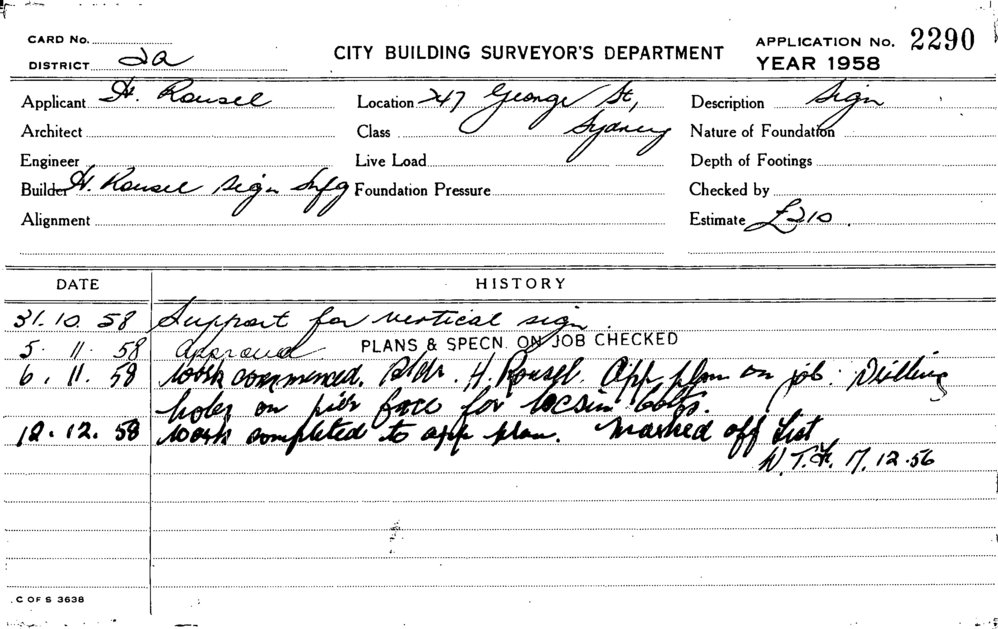 CARD No.
DISTRICT 2a
CITY BUILDING SURVEYOR'S DEPARTMENT
APPLICATION No. 2290
YEAR 1958
Applicant H. Rousel Location 247 George St, Description Sign
Architect Class Sydney Nature of Foundation
Engineer Live Load Depth of Footings
Builder H. Rousel Sign Mfg Foundation Pressure Checked by
Alignment Estimate £210.
DATE HISTORY
31.10.58 Support for vertical sign
5.11.58 Approved PLANS & SPECN. ON JOB CHECKED
6.11.58 Work commenced. Bldr. H. Rousel. App plan on job. Drilling
holes on pier face for bolts.
12.12.58 Work completed to app plan. Marked off List
17.12.56
C OF S 3638